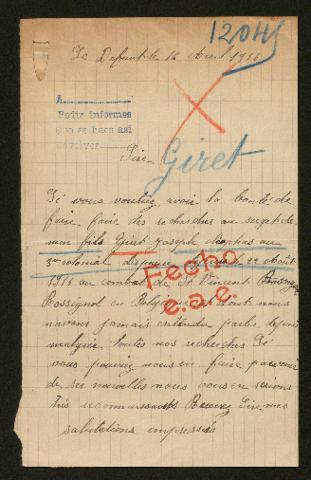 1204
Le Defunt le 16 Avril 1916
A
Pedir informes
Sire
Giret
Si vous vouliez avoir la bonté de
faire faire des recherches au sujet de
mon fils Giret Joseph au
3me colonial disparu le 22 Août
au combat de St Vincent
Rossignol en Belgique et dont nous
navons jamais entendu parler depuis
malgré toutes nos recherches Si
vous pouviez nous en faire parvenir
de ses nouvelles nous vous en serions
très reconnaissants Recevez Sire mes
salutations empressés
Fecho
e.a.e.